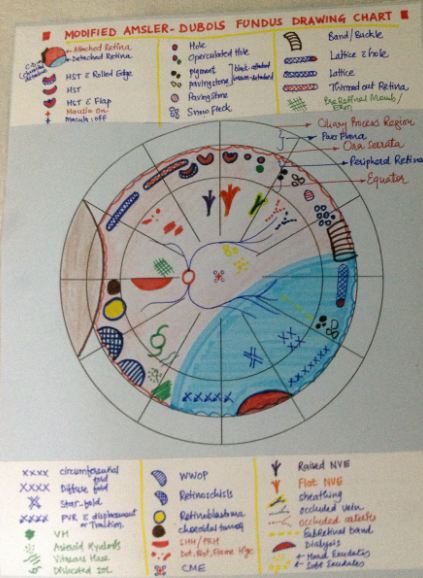 MODIFIED AMSLER-DUBOLS FUNDUS DRAWING CHART
Attached Retina
Detached Retina
HST c̄ Rolled Edge
HST
HST c̄ Flap
Macula on
Macula off
Hole
Operculated Hole
pigment
pavingstone
Black-attached
Brown-detached
Paving Stone
Snow Fleck
Band/Buckle
Lattice c̄ hole
Lattice
Thinned out Retina
Pre Retinal Memb/
Ciliary Process Region
Pars Plana
Ora Serrata
Peripheral Retina
Equator
circumferential fold
Diffuse fold
Star fold
PVR c̄ displacement or Traction
VH
Asteroid Hyalosis
Vitreous Haze
Dislocated IOL
WWOP
Retinoschisis
Retinoblastoma
choroidal tumour
SHH/PRH
Dot, Blot, Flame Hge
CME
Raised NVE
Flat NVE
sheathing
occluded vein
occluded arteriole
SubRetinal Band
Dialysis
Hard Exudates
Soft Exudates